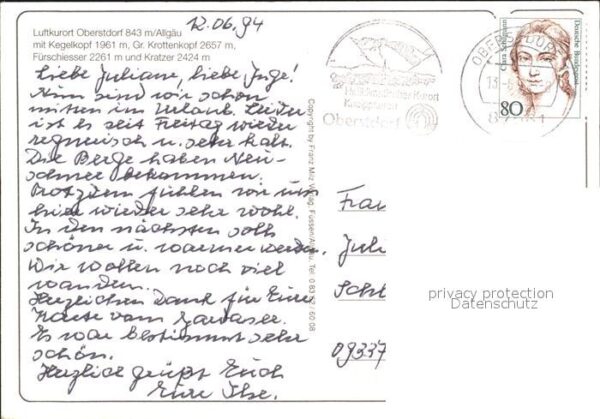 12.06.94
Luftkurort Oberstdorf 843 m/Allgäu
mit Kegelkopf 1961 m, Gr. Krottenkopf 2657 m,
Fürschiesser 2261 m und Kratzer 2424 m
Liebe Juliane, liebe Inge!
Nun sind wir schon
mitten im Urlaub. Leider
ist es seit Freitag wieder
regnerisch u. sehr kalt.
Die Berge haben Neu-
schnee bekommen.
Trotzdem fühlen wir uns
hier wieder sehr wohl.
In den nächsten solls
schöner u. warmer werden.
Wir wollen noch viel
wandern.
Herzlichen Dank für Eure
Karte vom Gardasee.
Es war bestimmt sehr
schön.
Herzlich grüßt Euch
Eure Ilse.
Copyright by Franz Milz Verlag, Füssen/Allgäu, Tel. 0 83 62 / 60 08
Heilklimatischer Kurort
Kneippkurort
Oberstdorf
OBERSTDORF
13.-6.
Deutsche Bundespost
80
Frau
Juli
Schl
09337
privacy protection
Datenschutz